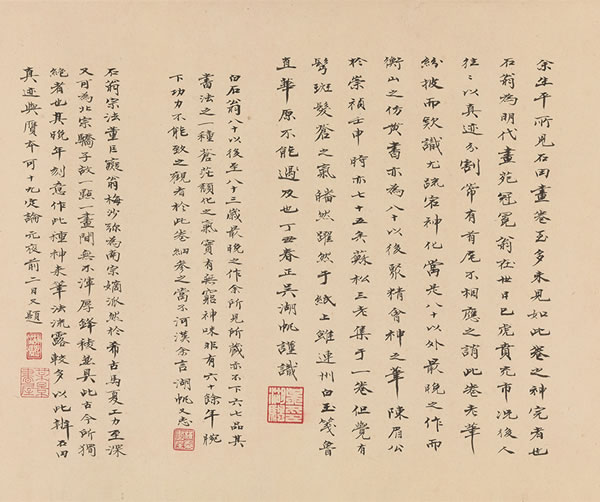 余生平所見石田畫卷至多未見如此卷之神完者也
石翁為明代畫苑冠冕翁在世日已虎賁充市況後人
往〻以真迹分割常有首尾不相應之誚此卷老筆
紛披而欵識尤疏宕神化當是八十以外最晚之作而
衡山之仿黃書亦為八十以後聚精會神之筆陳眉公
於崇禎壬申時亦七十五矣蘇松三老集于一卷但覺有
髩斑髮蒼之氣皤然躍然于紙上雖連州白玉箋魯
直華原不能過及也丁丑春正吳湖帆謹識
白石翁八十以後至八十三歲最晚之作余所見所藏亦不下六七品其
書法之一種蒼莊頹化之氣實有無窮神味非有六十餘年腕
下功力不能致之觀者於此卷細參之當不河漢余言湖帆又志
石翁宗法董巨翁梅沙弥為南宗嫡派然於希古馬夏工力至深
又可為北宗驕子故一點一畫間無不渾厚鋒稜並具此古今所獨
絕者也其晚年刻意作此種神來筆法流露較多以此辨石田
真迹與贗本可十九定論元夜前二日又題